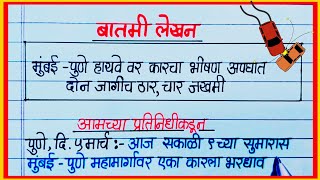 बातमी लेखन
मुंबई -पुणे हायवे वर कारचा भीषण अपघात
दोन जागीच ठार, चार जखमी
आमच्या प्रतिनिधीकडून
पुणे, दि. ५ मार्च :- आज सकाळी ९ च्या सुमारास
मुंबई -पुणे महामार्गावर एका कारला भरधाव